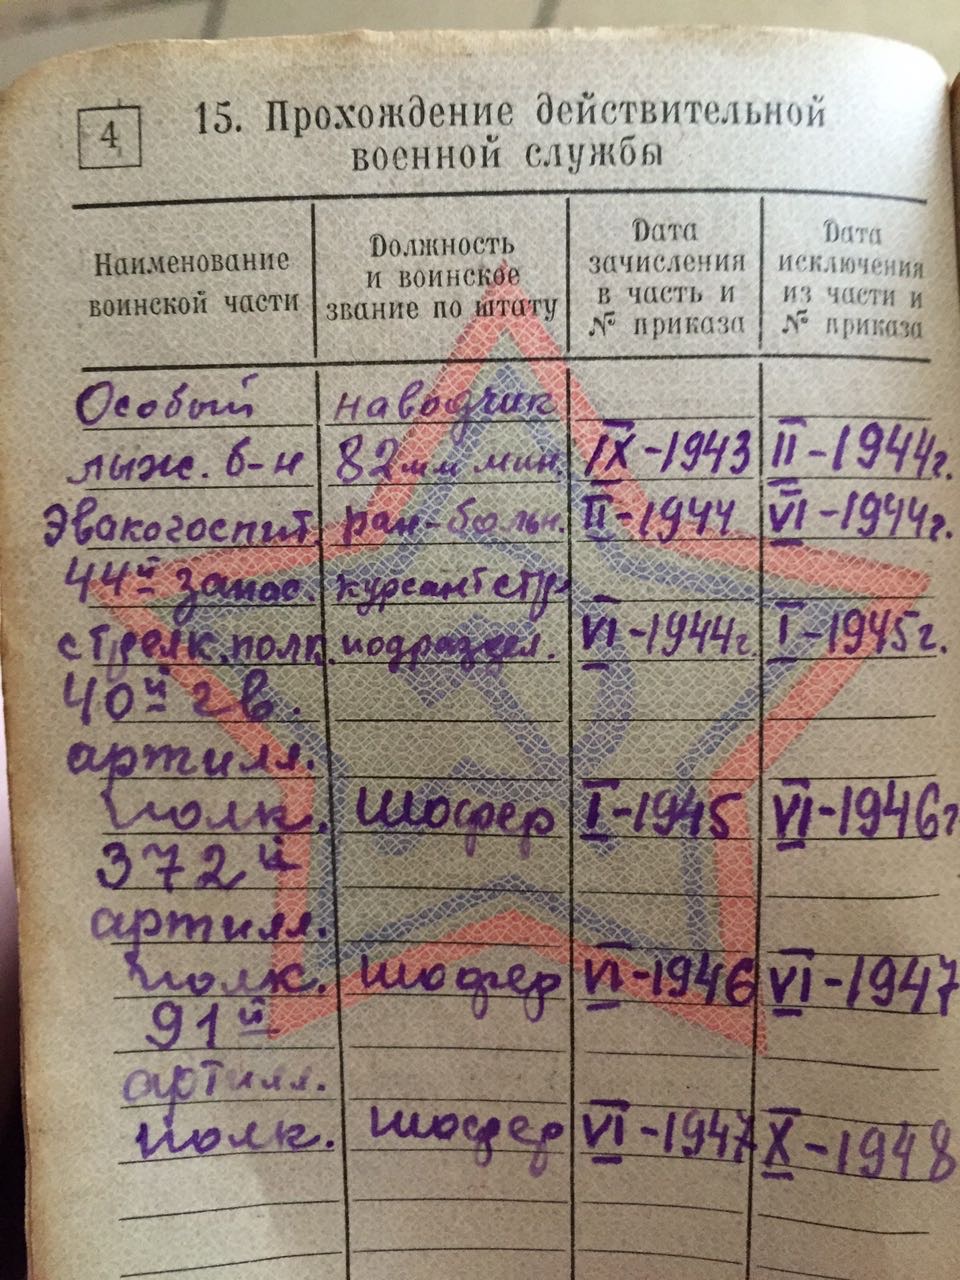 4
15. Прохождение действительной
военной службы
Наименование
воинской части
Должность
и воинское
звание по штату
Дата
зачисления
в часть и
№ приказа
Дата
исключения
из части и
№ приказа
Особый наводчик
лыж. б-н 82мм мин. IX-1943 II-1944г.
Эвакогоспит. ран-больн. II-1944 VI-1944г.
44й запас. курсант стр.
стрелк. полк. подраздел. VI-1944г. I-1945г.
40й гв.
артилл.
полк. Шофер I-1945 VI-1946г
372й
артилл.
полк. шофер VI-1946 VI-1947
91й
артилл.
полк. шофер VI-1947 X-1948